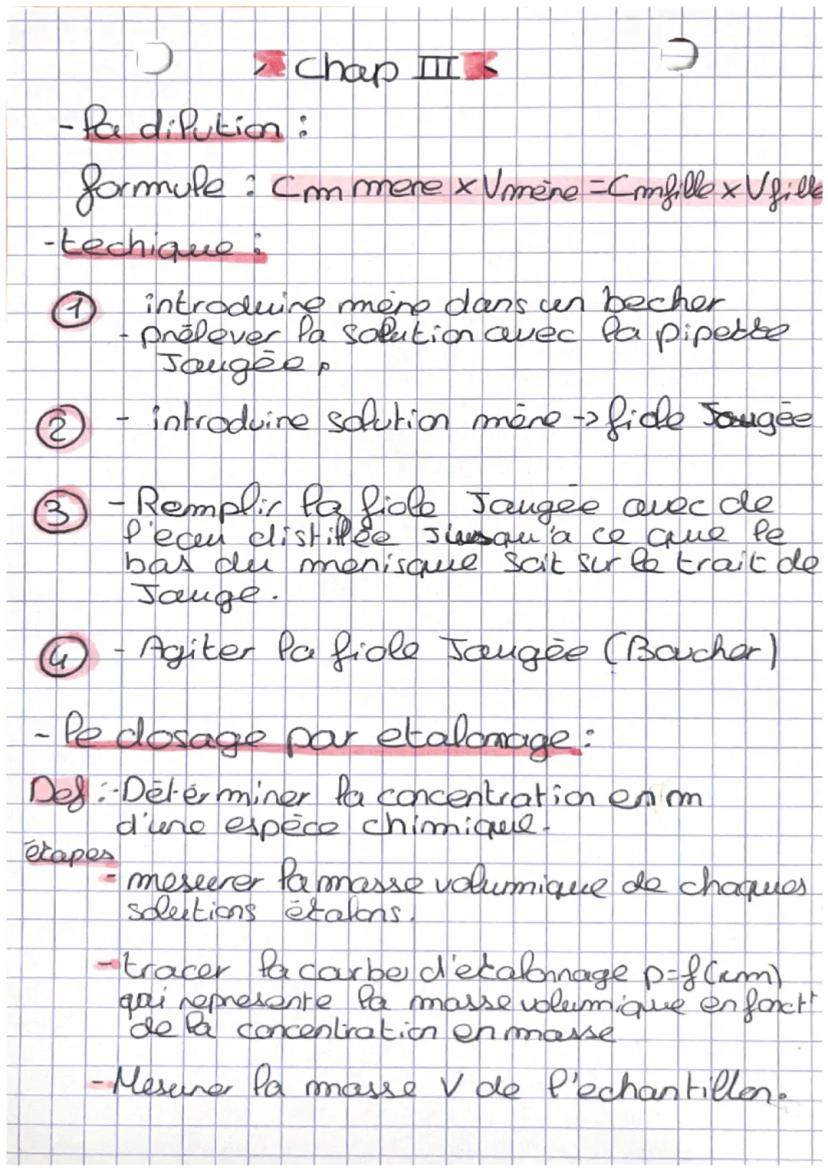 Chap III
- la dilution :
formule : Cm mere x Vmère = Cmfille x Vfille
- techique :
① introduire mère dans un becher
- prélever la solution avec la pipette
Jaugée,
② - introduire solution mère -> fiole Jaugée
③ - Remplir la fiole Jaugée avec de
l'eau distillée Jusqu'a ce que le
bas du menisque soit sur le trait de
Jauge.
④ - Agiter la fiole Jaugée (Boucher)
- le dosage par etalonage :
Def : - Déterminer la concentration en m
d'une espèce chimique.
étapes
- mesurer la masse volumique de chaques
solutions étalons.
- tracer la courbe d'etalonnage p=f(cm)
qui represente la masse volumique en fonct°
de la concentration en masse
- Mesurer la masse V de l'echantillon.